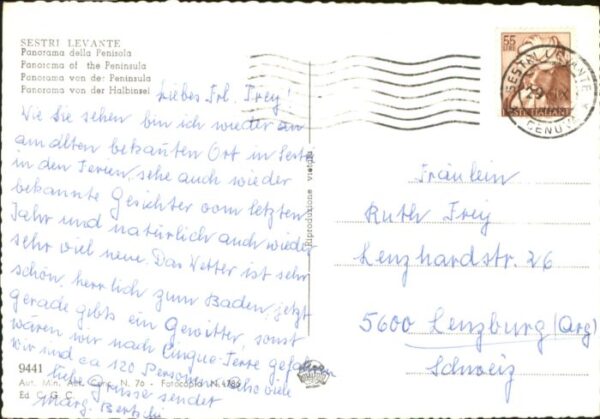 SESTRI LEVANTE
Panorama della Penisola
Panorama of the Peninsula
Panorama von der Peninsula
Panorama von der Halbinsel
Liebes Frl. Frey!
Wie Sie sehen bin ich wieder an
am alten bekanten Ort in Sestri
in den Ferien, sehe auch wieder
bekannte Gesichter vom letzten
Jahr und natürlich auch wieder
sehr viel neue. Das Wetter ist sehr
schön, herrlich zum Baden, jetzt
gerade gibts ein Gewitter, sonst
wären wir nach Cinque-Terre gefahren
wir sind ca 120 Personen also viele
liebe Grüsse sendet
Marg.
9441
Aut. Min. N. 76 - Fotocolor N. 4785
Ed. C. G. C.
Riproduzione vietata
55
LIRE
POSTE ITALIANE
SESTRI LEVANTE
GENOVA
Fräulein
Ruth Frey
Lenzhardstr. 26
5600 Lenzburg (Arg)
Schweiz